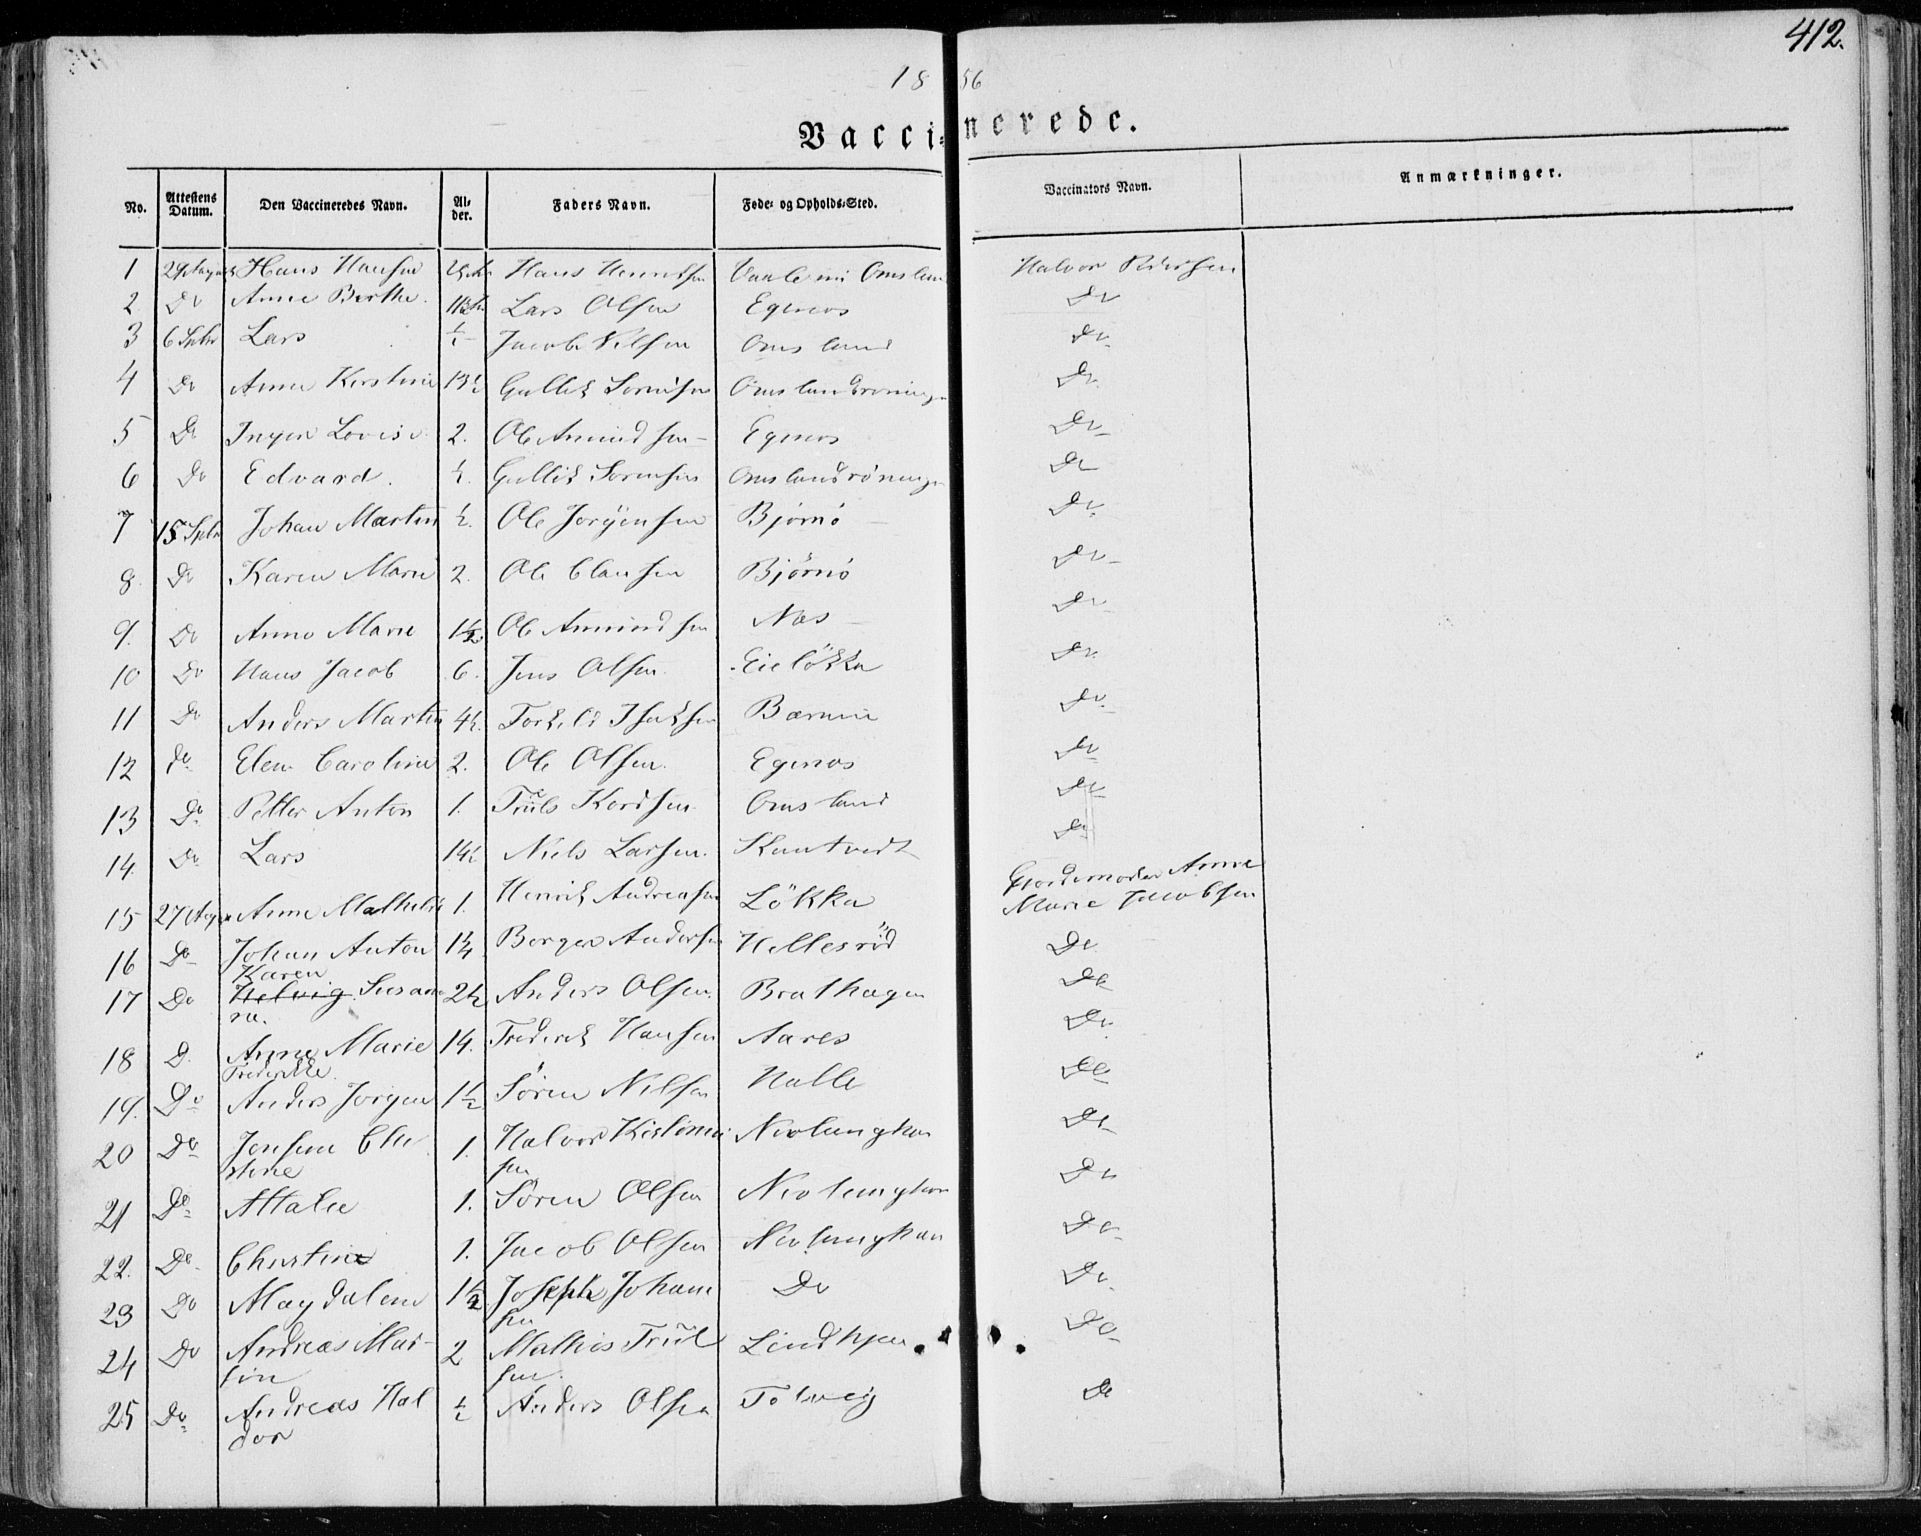 412.
18 56
Vaccinerede.
No. Attestens Datum. Den Vaccineredes Navn. Alder. Faders Navn. Føde- og Opholds-Sted. Vaccinators Navn. Anmærkninger.
1 29 August Hans Hansen Hans Halvor
2 Do Anne Berthe. Lars Olsen Egenes Do
3 6 Sptbr Lars ½ Jacob Nilsen Omsland Do
4 Do Anne Kirstine 13½ Gullik Sørensen Omslandrønnings Do
5 Do Inger Lovise 2. Ole Amundsen Egenes Do
6 Do Edvard. ½. Gullik Sørensen Omslandrønninge Do
7 15 Sptbr Johan Martin ½. Ole Jorgensen Bjørnø Do
8. Do Karen Marie 2. Ole Clausen Bjørnø Do
9. Do Anne Marie 1½. Ole Amundsen Næs Do
10 Do Hans Jacob 6. Jens Olsen. Eieløkka Do
11 Do Anders Martin 4½. Torkild Isaksen Do
12 do Elen Caroline 2. Ole Olsen. Egenæs Do
13 Do Petter Anton 1. Trŭls Omsland Do
14. Do Lars Niels Larsen. Do
15 27 Aug Anne Mathelie 1. Henrik Andreasen Løkka Gjordemoder Anne
Marie Jacobsen
16 Do Johan Anton 1¼ Borger Andersen Hellesrød Do
Karen
17 Do Helvig Susan 2½ Anders Olsen. Brathagen Do
ne.
18 D. Anne Marie 14. Frederik Hansen Aares Do
Frederikke
19. Do Anders Jorgen 1½ Søren Nilsen Halle Do
20 Do Jensine Chri 1. Halvor Nevlunghan Do
stine sen
21 Do Attalie 1. Søren Olsen Nevlunghavn Do
22. Do Christine 1. Jacob Olsen Nevlunghan Do
23 Do Magdalene 1½ Joseph Johann Do Do
sen
24 Do Andreas Mar- 2 Mathies Trŭl Lindhjem Do
tin sen
25 Do Andreas Hal ½ Anders Olsen Do
dor